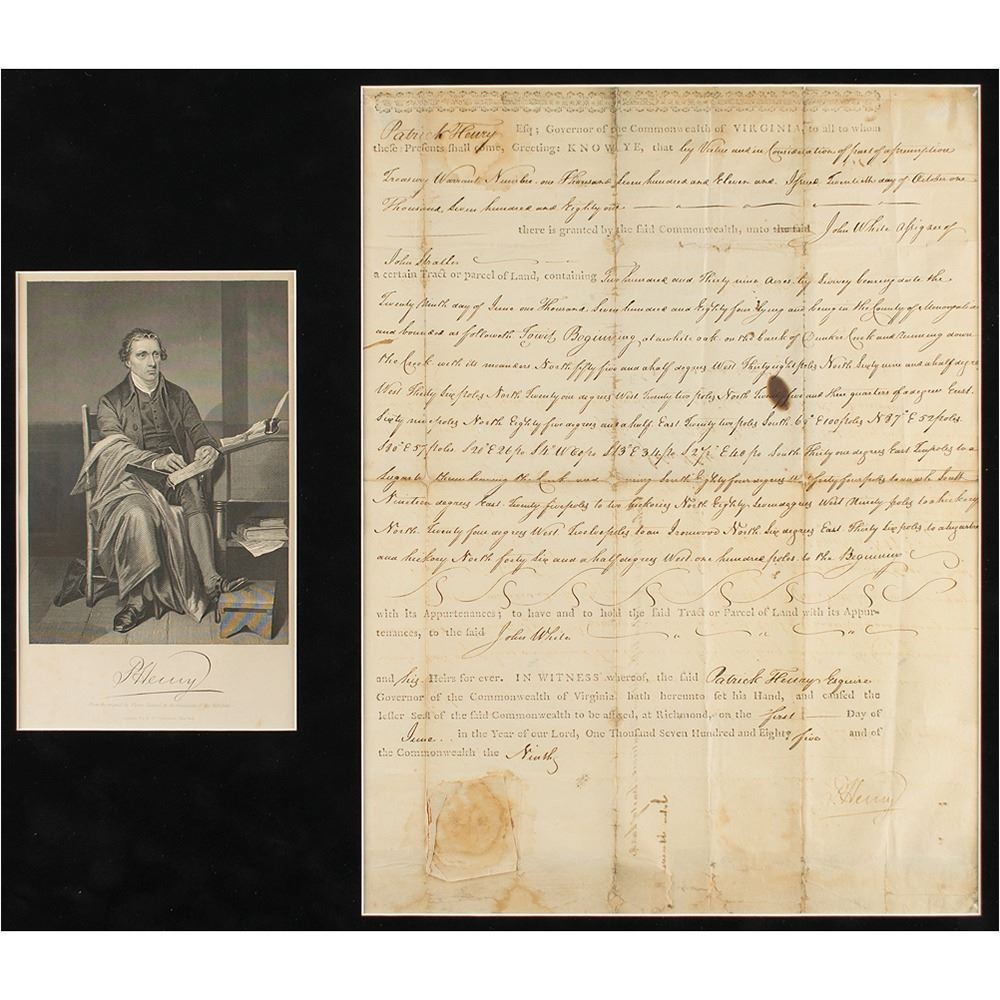 Patrick Henry Esq; Governor of the Commonwealth of VIRGINIA, to all to whom
these Presents shall come, Greeting: KNOW YE, that by Virtue and in Consideration of part of a preemption
Treasury Warrant Number one Thousand Seven hundred and Eleven and Issued Twentieth day of October one
Thousand Seven hundred and Eighty one
there is granted by the said Commonwealth, unto the said John White Assignee of
John
a certain Tract or parcel of Land, containing Two hundred and Thirty nine Acres by Survey bearing date the
Twenty Ninth day of June one Thousand Seven hundred and Eighty four lying and being in the County of Monongalia
and bounded as followeth Towit Beginning at a white oak on the bank of Dunker Creek and Running down
the Creek with its meanders North fifty five and a half degrees West Thirty eight poles North Sixty nine and a half degrees
West Thirty Six poles North Twenty one degrees West Twenty two poles North Twenty five and three quarters of a degree East
Sixty nine poles North Eighty five degrees and a half East Twenty two poles South 69° E 100 poles N 87° E 52 poles
S 80° E 57 poles S 20° E 26 po S 4° W 60 po S 13° E 34 po S 27° E 40 po South Thirty one degrees East Ten poles to a
South Eighty four degrees forty four poles to an oak South
Nineteen degrees East Twenty five poles to two hickories North Eighty degrees West Ninety poles to a hickory
North Twenty four degrees West Twelve poles to an Ironwood North Six degrees East Thirty Six poles to a
and hickory North forty six and a half degrees West one hundred poles to the Beginning
with its Appurtenances; to have and to hold the said Tract or Parcel of Land with its Appur-
tenances, to the said John White
and his Heirs for ever. IN WITNESS whereof, the said Patrick Henry Esquire
Governor of the Commonwealth of Virginia, hath hereunto set his Hand, and caused the
lesser Seal of the said Commonwealth to be affixed, at Richmond, on the first Day of
June in the Year of our Lord, One Thousand Seven Hundred and Eighty five and of
the Commonwealth the Ninth
P. Henry
P. Henry